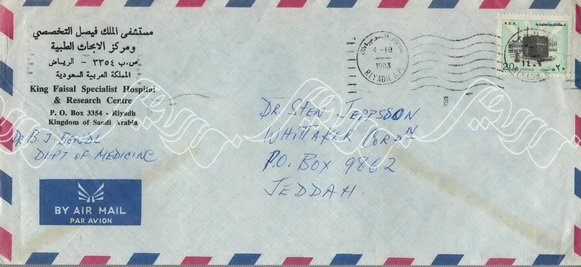 مستشفى الملك فيصل التخصصي
ومركز الابحاث الطبية
ص.ب ٣٣٥٤ - الرياض
المملكة العربية السعودية
King Faisal Specialist Hospital
& Research Centre
P. O. Box 3354 - Riyadh
Kingdom of Saudi Arabia
Dr. B.J.
DEPT OF MEDICINE
BY AIR MAIL
PAR AVION
1983
RIYADH
K.S.A.
20
٢٠
DR STEN JEPPSSON
WHITTAKER CORPN
P.O. BOX 9862
JEDDAH.